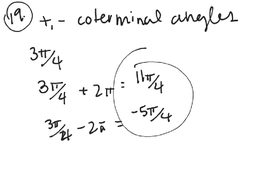 19. +, - coterminal angles
3π/4
3π/4 + 2π = 11π/4
3π/4 - 2π = -5π/4